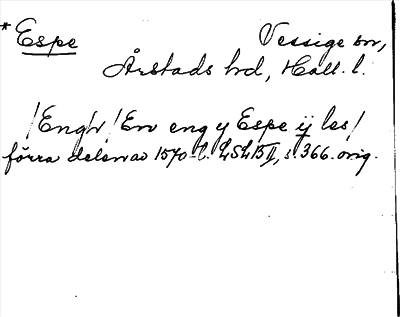 *Espe Vessige sn,
Årstads hd, Hall. l.
/Engh/ En eng y Espe ij les/
förra delen av 1570-t. LSLB II, s. 366. orig.